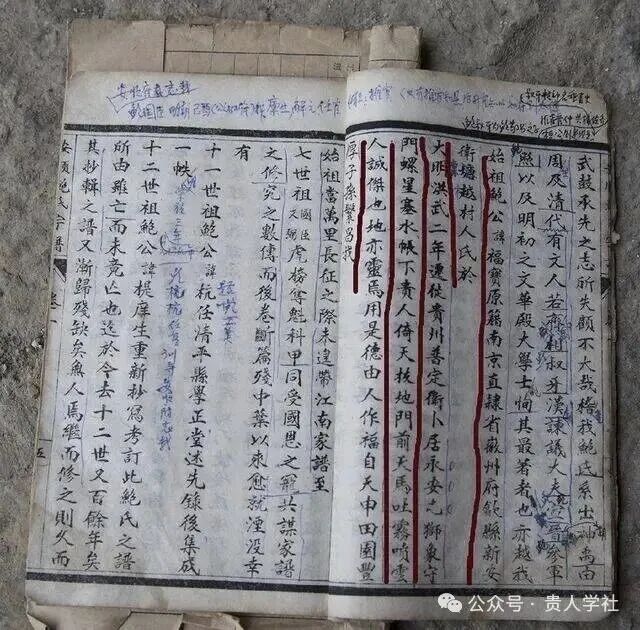 武鼓承先之志所矢顧不大哉稽我鮑氏系出神禹由
周及清代有文人若齊相叔牙漢諫議大夫宣晉參軍
照以及明初之文華殿大學士恂其最著者也亦越我
始祖鮑公諱福寶原籍南京直隸省徽州府歙縣新安
衛塘越村人氏於
大明洪武二年遷徙貴州普定衛卜居永安之獅東守
門螺星塞水帳下貴人倚天拔地門前天馬吐霧噴雲
人誠傑也地亦靈焉用是德由人作福自天申田園豐
厚子孫繁昌哉
始祖當萬里長征之際未遑帶江南家譜至
七世祖國臣又弼虎榜奪魁科甲同受國恩之寵共謀家譜
文修究之數傳而後卷斷篇殘中葉以來愈就湮沒幸
有
十一世祖鮑公諱杭任清平縣學正堂述先錄後集成
一帙
十二世祖鮑公諱梶庠生重新抄寫考訂此鮑氏之譜
所由雖亡而未竟亡也迄於今去十二世又百餘年矣
其抄輯之譜又漸歸殘缺矣魚人焉繼而修之則久而
安順鮑氏宗譜
卷一
五
公众号·贵人学社